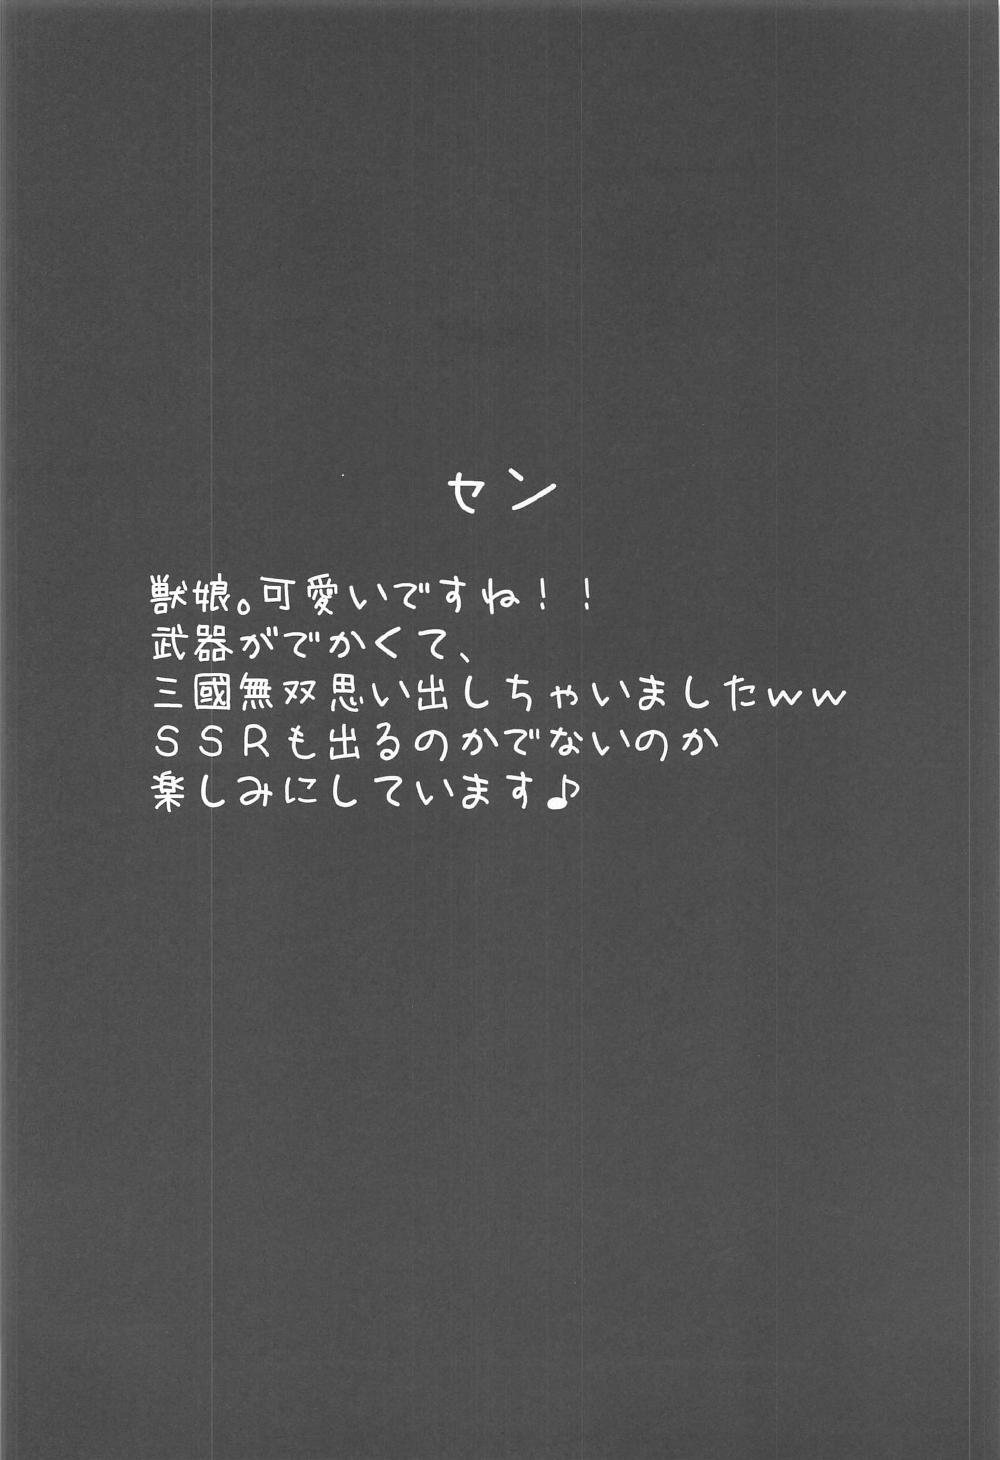 セン
獣娘。可愛いですね！！
武器がでかくて、
三國無双思い出しちゃいましたｗｗ
ＳＳＲも出るのかでないのか
楽しみにしています♪